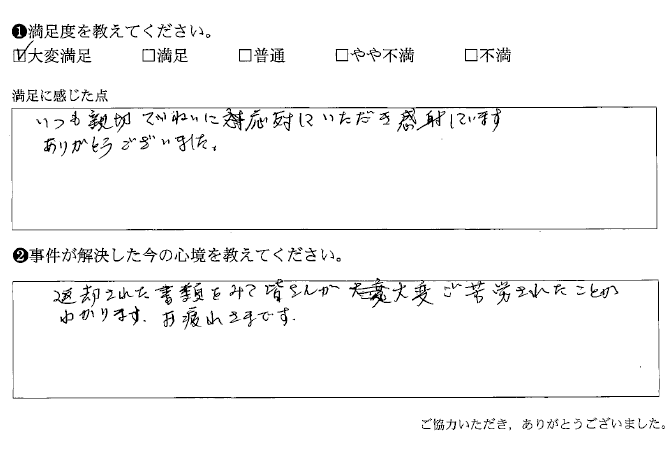 ❶満足度を教えてください。
☑大変満足 □満足 □普通 □やや不満 □不満
満足に感じた点
いつも親切ていねいに対応していただき感射しています
ありがとうございました。
❷事件が解決した今の心境を教えてください。
返却された書類をみて皆さんが大変ご苦労されたことが
わかります。お疲れさまです。
ご協力いただき，ありがとうございました。